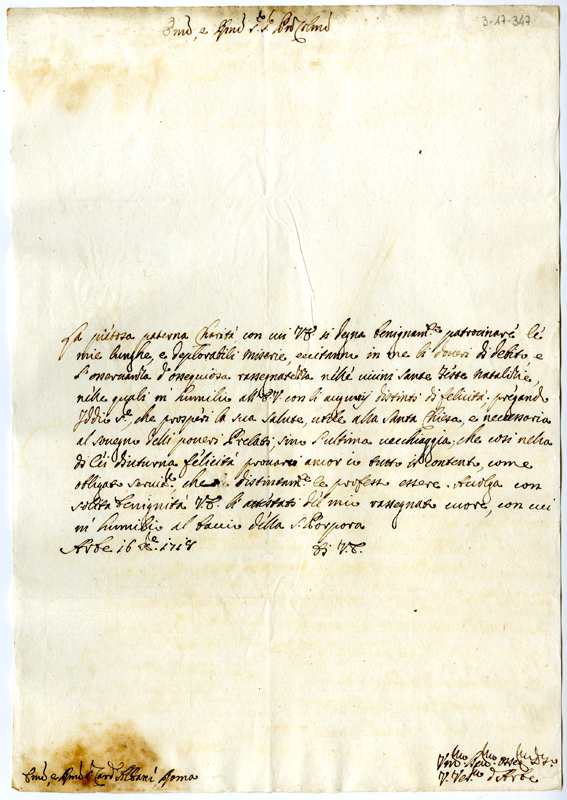 3-17-347
Emo, e Rmo Sig.r Sig.r Pron Colmo
La pietosa paterna Charità con cui V.E. si degna benignam.te patrocinare le
mie lunghe, e deplorabili miserie, eccitano in me li doveri di debito, e
l'osservanza d'ossequiosa rassegnatezza nelle vicine Sante Feste natalitie,
nelle quali m'humilio all'E.V. con li augurij distinti di felicità, pregando
Iddio S.e, che prosperi la sua salute, utile alla Santa Chiesa, e necessaria
al sovegno delli poveri Prelati, sino l'ultima vecchiaggia, che così nella
di Lei diuturna felicità provarò amor io tutto il content, come
obligato servid.e, che distintam.te le profess essere. Accolga con
solita benignità V.E. li attestati del mio rassegnato cuore, con cui
m'humilio al baccio della S. Porpora
Arbe 16 Xbre. 1718 Di V.E.
Emo, e Rmo Card. Albani Roma
V. Ves.vo d'Arbe